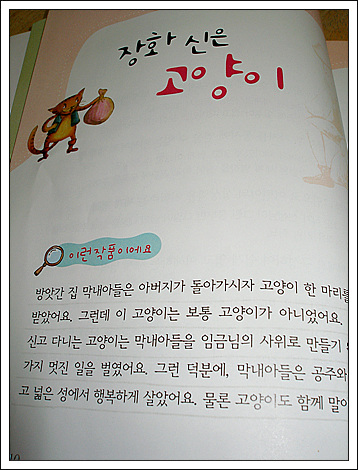 장화 신은
고양이
이런 작품이에요
방앗간 집 막내아들은 아버지가 돌아가시자 고양이 한 마리를
받았어요. 그런데 이 고양이는 보통 고양이가 아니었어요.
신고 다니는 고양이는 막내아들을 임금님의 사위로 만들기
가지 멋진 일을 벌였어요. 그런 덕분에, 막내아들은 공주와
고 넓은 성에서 행복하게 살았어요. 물론 고양이도 함께 말이